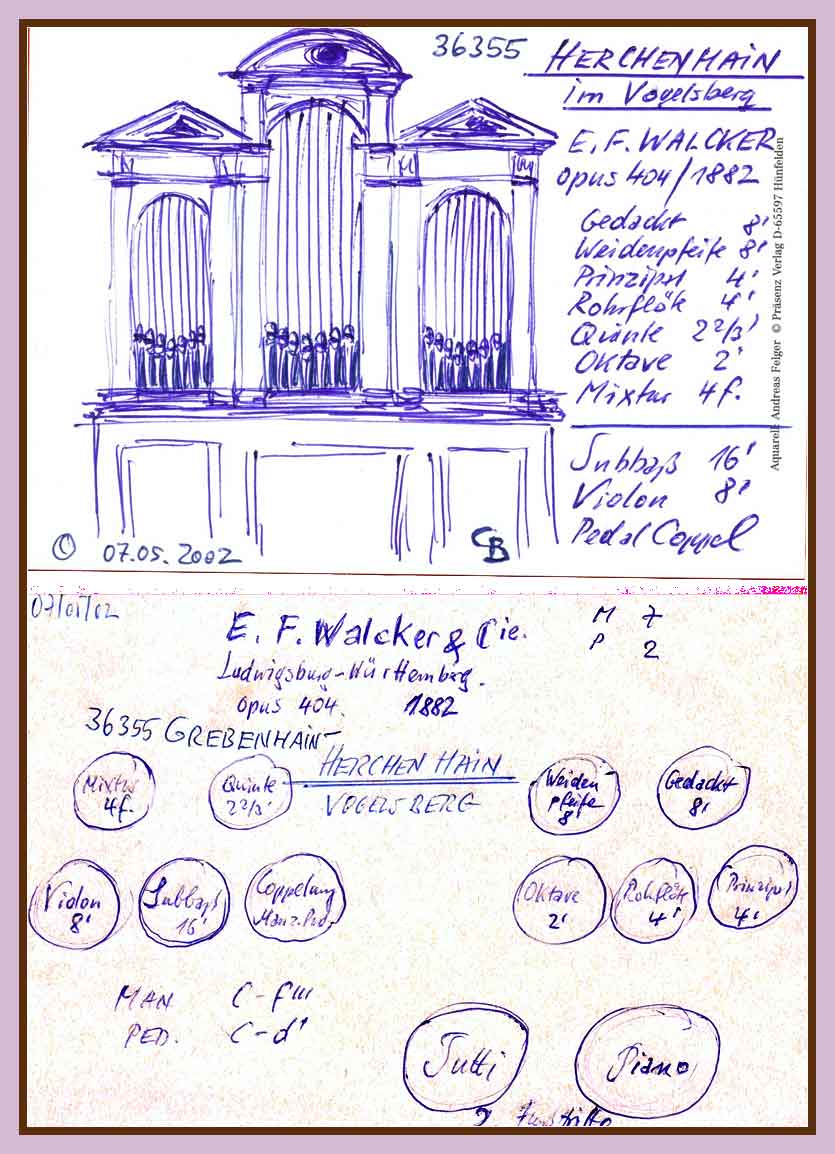 36355 HERCHENHAIN
im Vogelsberg
E. F. WALCKER
opus 404/1882
Gedackt 8'
Weidenpfeife 8'
Prinzipal 4'
Rohrflöte 4'
Quinte 2 2/3'
Oktave 2'
Mixtur 4f.
Subbaß 16'
Violon 8'
Pedal Coppel
© 07.05.2002
CB
Aquarell: Andreas Felger © Präsenz Verlag D-65597 Hünfelden
07/05/02
E. F. Walcker & Cie.
M 7
P 2
Ludwigsburg-Württemberg.
opus 404. 1882
36355 GREBENHAIN-
HERCHENHAIN
VOGELSBERG
Mixtur
4f.
Quinte
2 2/3'
Weiden-
pfeife
8'
Gedackt
8'
Violon
8'
Subbaß
16'
Coppelung
Man z. Ped.
Oktave
2'
Rohrflöte
4'
Prinzipal
4'
MAN C-f'''
PED. C-d'
Tutti
Piano
2